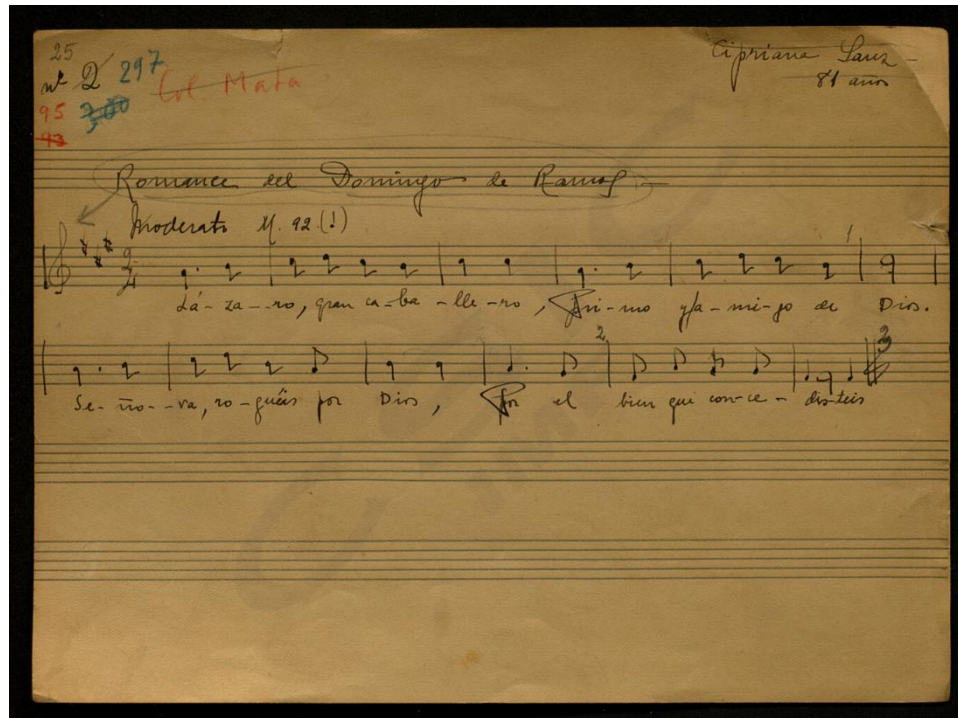 25
nº 2 297
Col. Mata
95 300
43
Cipriana Sanz -
81 años
Romance del Domingo de Ramos -
Moderato M. 92 (!)
2/4
1
Lá-za--ro, gran ca-ba-lle-ro, Pri-mo y a-mi-go de Dios.
2 3
Se-ño-ra, ro-guéis por Dios, Por el bien que con-ce-dis-teis